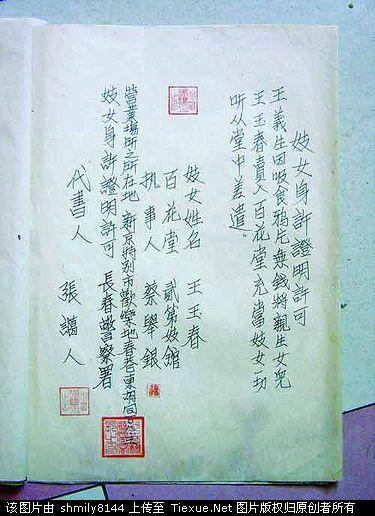 妓女身許證明許可
王義生因吸食鸦片無錢將親生女兒
王玉春賣入百花堂充當妓女一切
听从堂中差遣。
妓女姓名 王玉春
百花堂 貳第妓舘
执事人 蔡舉銀
營業場所之所在地 新京特别市歡樂地春巷東胡同
妓女身許證明許可 長春警察署
代書人 張謁人
该图片由 shmily8144 上传至 Tiexue.Net 图片版权归原创者所有